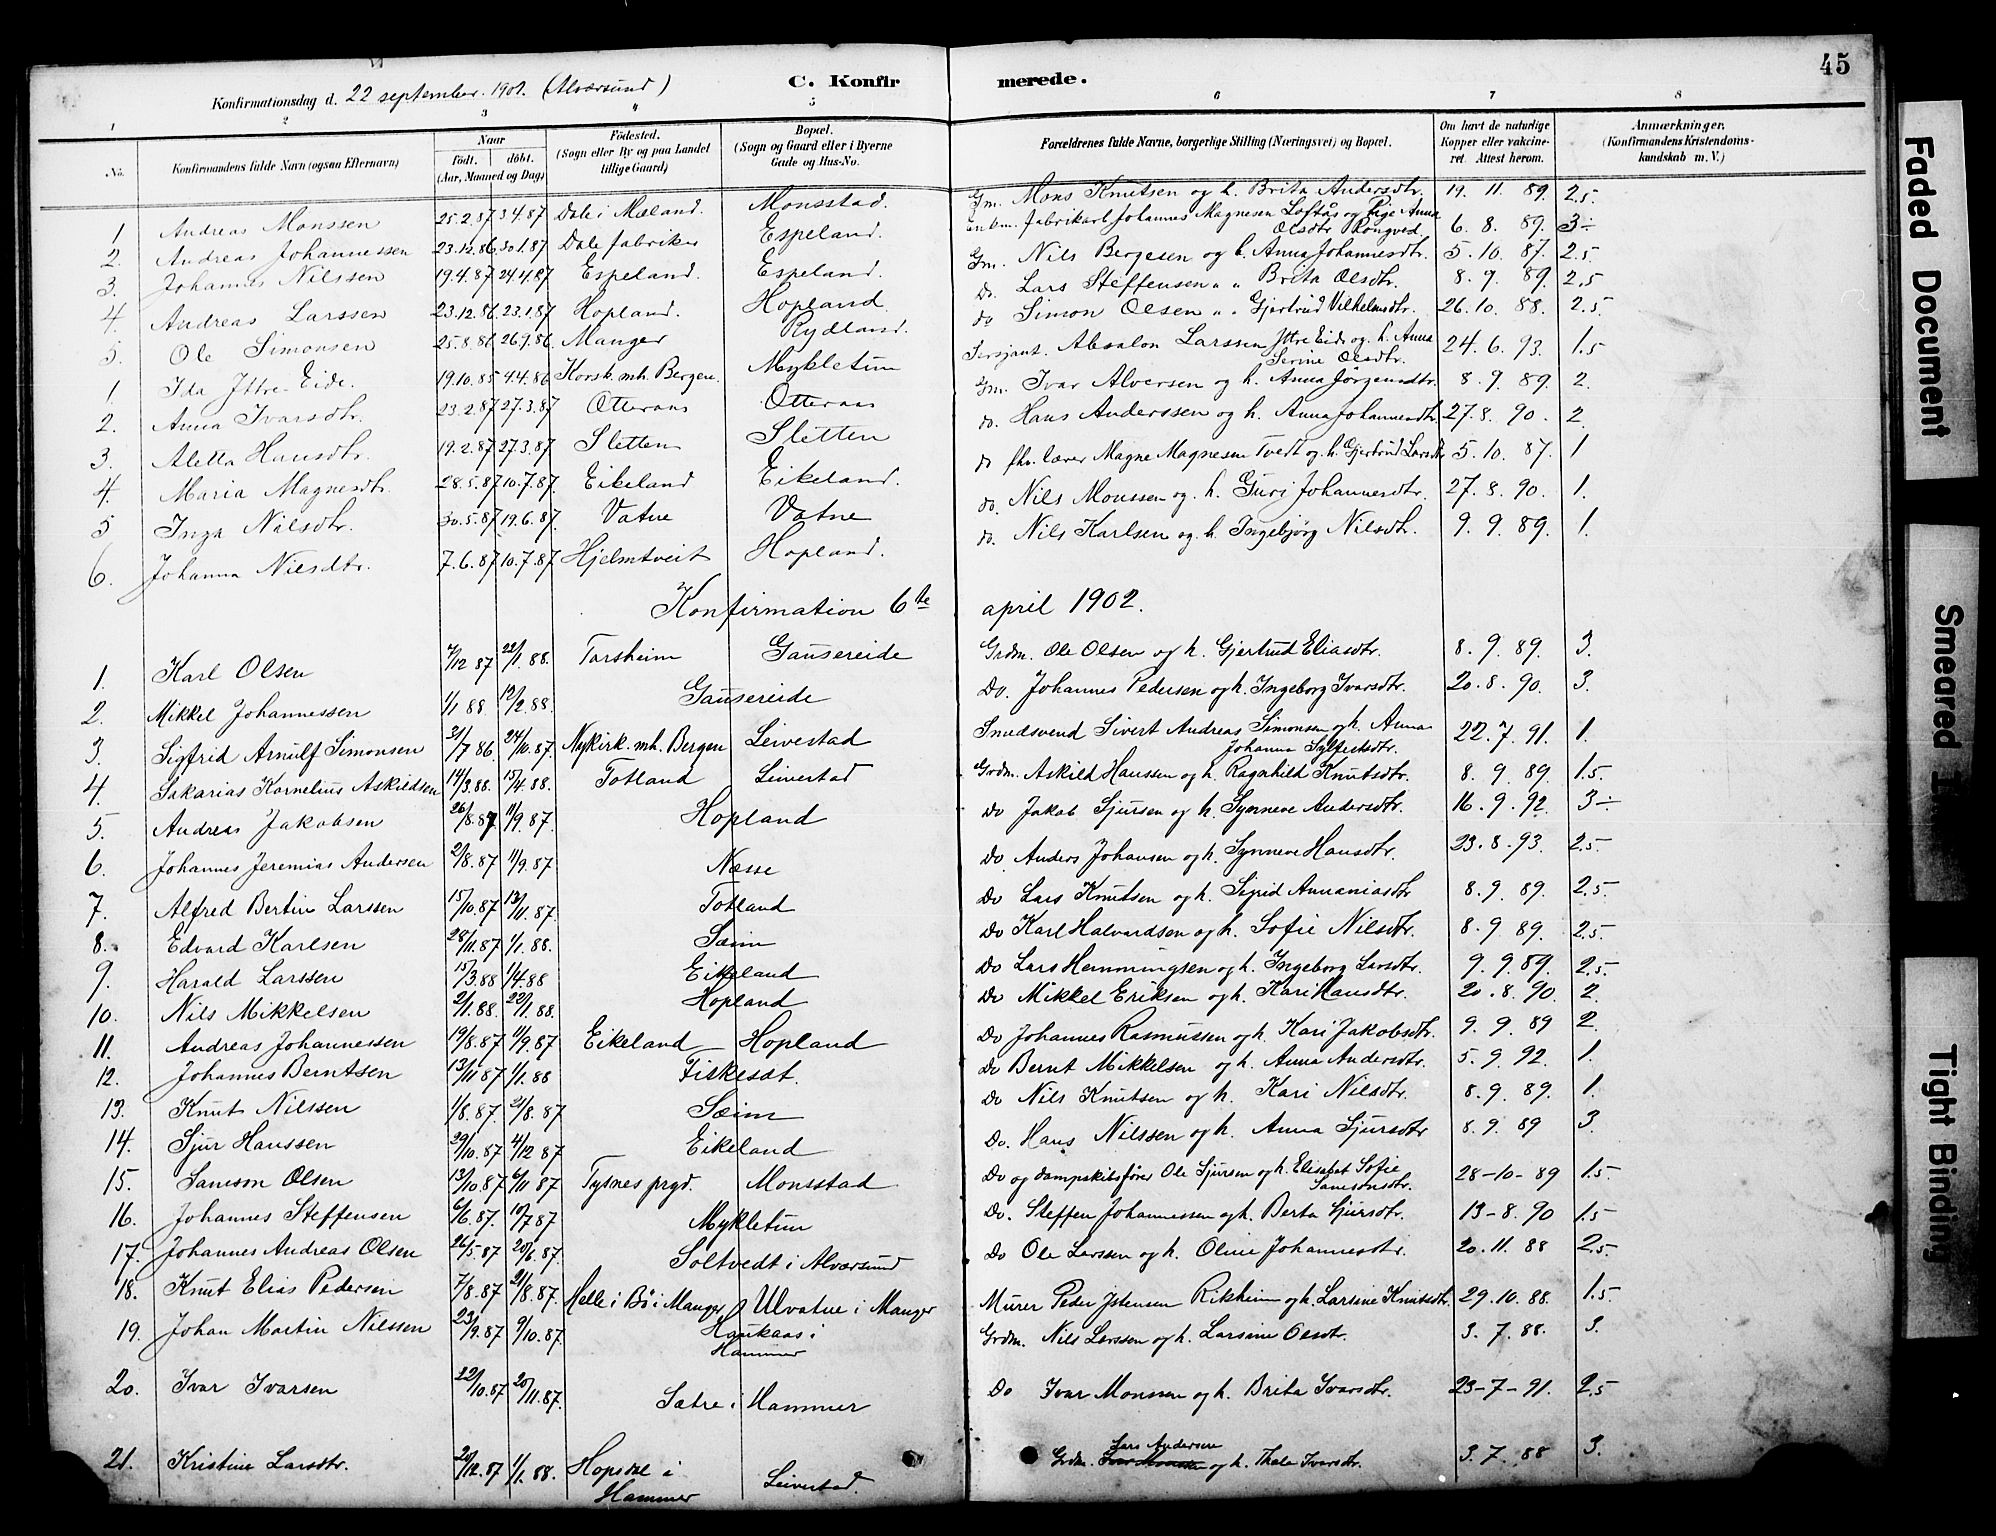 45
Konfirmationsdag d. 22 september. 1901. (Alværsund)
C. Konfirmerede.
1 2 3 4 5 6 7 8
No. Konfirmandens fulde Navn (ogsaa Efternavn) Naar födt. döbt. (Aar, Maaned og Dag) Födested. (Sogn eller By og paa Landet tillige Gaard) Bopæl. (Sogn og Gaard eller i Byerne Gade og Hus-No. Forældrenes fulde Navne, borgerlige Stilling (Næringsvei) og Bopæl. Om havt de naturlige Kopper eller vakcineret. Attest herom. Anmærkninger. (Konfirmandens Kristendomskundskab m. V.)
1 Andreas Monssen 25.2.87 3.4.87 Dale i Mæland. Monsstad. Gm. Mons Knutsen og h. Brita Andersdtr. 19. 11. 89. 2.5
2. Andreas Johannessen 23.12.86. 30.1.87 Dale fabriker Espeland. Fabrikarb Johannes Magnesen Loftås og Pige Anna Olsdtr Rongved 6. 8. 89. 3÷
3. Johannes Nilssen 19.4.87 24.4.87 Espeland. Espeland. Gm. Nils Bergesen og h. Anna Johannesdtr. 5. 10. 87. 2.5
4. Andreas Larssen 23.12.86 23.1.87 Hopland. Hopland Do. Lars Steffensen " " Brita Olsdtr. 8. 9. 89. 2.5
5. Ole Simonsen 25.8.86 26.9.86 Manger Rydland. do Simon Olsen " " Gjertrud Vilhelmsdtr. 26. 10. 88. 2.5
1 Ida Ittre-Eide. 19.10.85 4.4.86 Korsk. mh. Bergen. Mykletun Sersjant. Absalon Larssen Yttre Eide og. h. Anna Serine Olsdtr. 24. 6. 93. 1.5
2. Anna Ivarsdtr. 23.2.87 27.3.87 Otteraas Otteraas Gm. Ivar Alversen og h. Anna Jörgensdtr. 8. 9. 89. 2.
3. Aletta Hansdtr. 19.2.87 27.3.87 Sletten Sletten do. Hans Anderssen og h. Anna Johannesdtr. 27. 8. 90. 2
4. Maria Magnesdtr. 28.5.87 10.7.87. Eikeland Eikeland. do fhv. lærer Magne Magnesen Tvedt og h. Gjertrud Larsdtr 5. 10. 87. 1
5 Inga Nilsdtr. 30.5.87 19.6.87 Vatne Vatne do. Nils Monssen og. h. Guri Johannesdtr. 27. 8. 90. 1.
6. Johanna Nilsdtr. 7.6.87 10.7.87 Hjelmtveit Hopland. do. Nils Karlsen og. h. Ingebjörg Nilsdtr. 9. 9. 89. 1.
Konfirmation 6te april 1902.
1. Karl Olsen 7/12 87 22/1. 88. Torsheim Gausereide Grdm. Ole Olsen og h. Gjertrud Eliasdtr. 8. 9. 89. 3.
2. Mikkel Johannessen 1/1 88. 12/2. 88. Gausereide Do. Johannes Pedersen og h. Ingeborg Ivarsdtr. 20. 8. 90. 3.
3. Sigfrid Arnulf Simonsen 31/7 86. 24/10. 87. Nykirk. mh. Bergen Leivestad Smedsvend Sivert Andreas Simonsen og h. Anna Johanna Sylfestsdtr. 22. 7. 91. 1.
4. Sakarias Kornelius Askildsen 14/3. 88. 15/4. 88. Totland Leivestad Grdm. Askild Hanssen og h. Ragnhild Knutsdtr. 8. 9. 89. 1.5.
5. Andreas Jakobsen 26/8. 87 11/9. 87. Hopland Do Jakob Sjursen og h. Synneve Andersdtr. 16. 9. 92. 3÷
6. Johannes Jeremias Andersen 2/8. 87 11/9. 87 Næsse Do Anders Johansen og h. Synneve Hansdtr. 23. 8. 93. 2.5
7. Alfred Bertin Larssen 15/10. 87 13/11. 87. Totland Do Lars Knutsen og h. Sigrid Annaniasdtr 8. 9. 89. 2.5
8. Edvard Karlsen 28/11. 87 1/1. 88. Sæim Do Karl Halvardsen og h. Sofie Nilsdtr. 8. 9. 89. 2.5.
9. Harald Larssen 15/3. 88 1/4. 88 Eikeland Do Lars Hemmingsen og h. Ingeborg Larsdtr. 9. 9. 89. 2.5.
10. Nils Mikkelsen 2/1. 88. 22/1. 88. Hopland Do Mikkel Eriksen og h. Kari Hansdtr. 20. 8. 90. 2.
11. Andreas Johannessen 19/8. 87. 11/9. 87 Eikeland Hopland Do Johannes Rasmussen og h. Kari Jakobsdtr. 9. 9. 89 2.
12. Johannes Berntsen 13/11 87 1/1. 88 Fiskesæt. Do Bernt Mikkelsen og h. Anna Andersdtr. 5. 9. 92. 1.
13. Knut Nilssen 1/8. 87. 21/8. 87 Sæim Do Nils Knutsen og h. Kari Nilsdtr. 8. 9. 89. 1.
14. Sjur Hanssen 29/10. 87 4/12 87 Eikeland Do. Hans Nilssen og h. Anna Sjursdtr 8. 9. 89 3.
15. Samson Olsen 13/10. 87 6/11 87 Tysnes prgd. Monsstad Do og dampskibsförer Ole Sjursen og h. Elisabet Sofie Samsonsdtr. 28-10-89 1.5.
16. Johannes Steffensen 6/6. 87. 10/7 87 Mykletun Do. Steffen Johannessen og h. Berta Sjursdtr. 13-8. 90 1.5
17. Johannes Andreas Olsen 26/5. 87 20/6. 87. Soltvedt i Alværsund Do Ole Larssen og h. Oline Johannesdtr. 20. 11. 88 2.5
18. Knut Elias Pedersen 7/8. 87 21/8. 87. Helle i Bö i Manger Ulvatne i Manger Murer Peder Istensen Rikheim og h. Larsine Knutsdtr. 29. 10. 88. 1.5
19. Johan Martin Nilssen 23/9. 87 9/10. 87. Haukaas i Hammer Grdm. Nils Larssen og h. Larsine Olsdtr. 3. 7. 88. 3.
20. Ivar Ivarsen 22/10. 87 20/11. 87. Sætre i Hammer Do Ivar Monssen og h. Brita Ivarsdtr. 23-7-91. 2.5
21. Kristine Larsdtr. 20/12. 87 1/1. 88. Hopsdal i Hammer Leivestad. Grdm. Lars Andersen og h. Thala Ivarsdtr. 3. 7. 88 3.
Faded Document
Smeared
Tight Binding